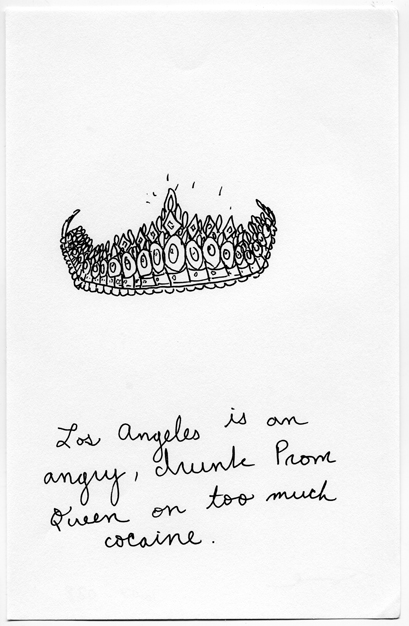 Los Angeles is an
angry, drunk Prom
Queen on too much
cocaine.